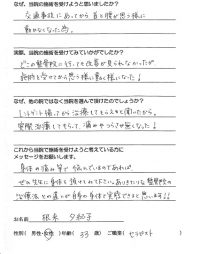 なぜ、当院の施術を受けようと思いましたか?
交通事故にあってから首と腰が思う様に
動かなくなった為。
実際、当院の施術を受けてみていかがでしたか?
どこの整骨院に行っても改善が見られなかったが
施術を受けてから思う様に動く様になった!
なぜ、他の院ではなく当院を選んで頂けたのでしょうか?
治療してもらえると聞いたから。
実際治療してもらって、痛みやつらさが無くなった!
これから当院の施術を受けようと考えている方に
メッセージをお願いします。
身体の痛み等で悩んでいるのであれば
ぜひ先生に身体を預けてみて下さい。ありきたりな整骨院の
治療法との違いが自分の身体で実感できると思います!!
お名前 根来 夕和子
性別( 男性・女性 ) 年齢( 33 歳) ご職業( セラピスト